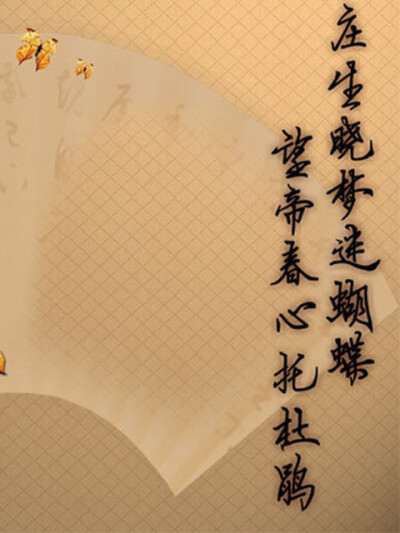 庄生晓梦迷蝴蝶
望帝春心托杜鹃